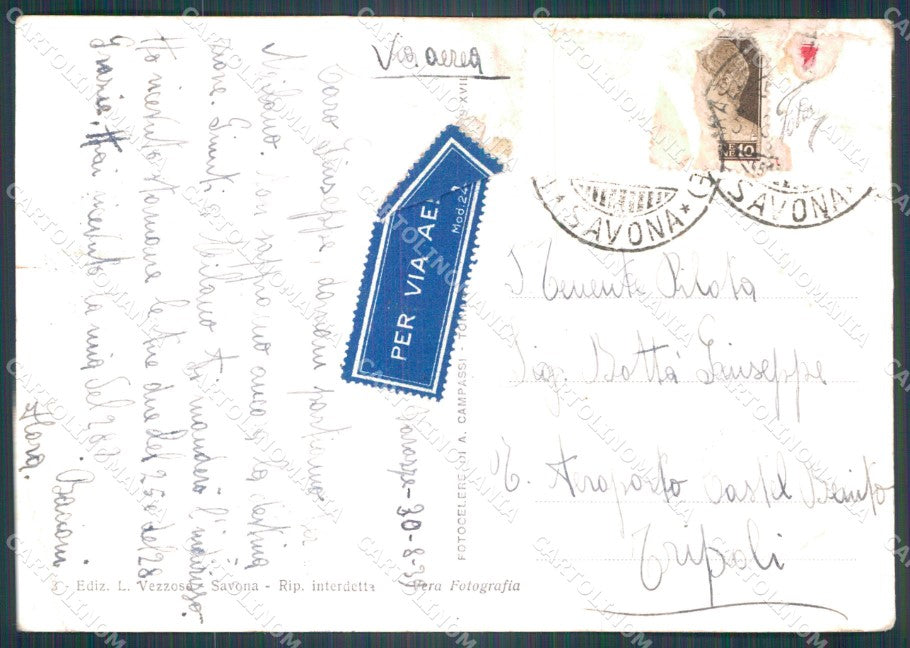 Via aerea
10
SAVONA
SAVONA
PER VIA AE
Mod. 24
S. Tenente Pilota
Sig. Bottà Giuseppe
R. Aeroporto Castel Benito
Tripoli
Varazze - 30-8-39
Caro Giuseppe, domani partiamo
Milano. Non sappiamo ancora la destina
zione. Giunti a Milano ti manderò l'indirizzo.
Ho ricevuto stamane le tue due del 25 e del 28
Grazie. Hai ricevuto la mia del 28. Bacioni
Flora.
FOTOCELERE DI A. CAMPASSI - TORINO
XVII
3 Ediz. L. Vezzoso - Savona - Rip. interdetta
Vera Fotografia
CARTOLINOMANIA